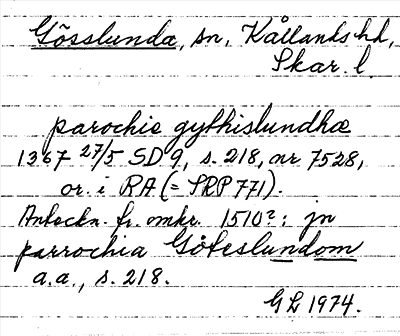 Gösslunda, sn, Kållands hd,
Skar. l.
parochie gythislundhæ
1367 27/5 SD 9, s. 218, nr 7528,
or. i RA (= SRP 771).
Anteckn. fr. omkr. 1510?: jn
parrochia Göteslundom
a.a., s. 218.
GL 1974.